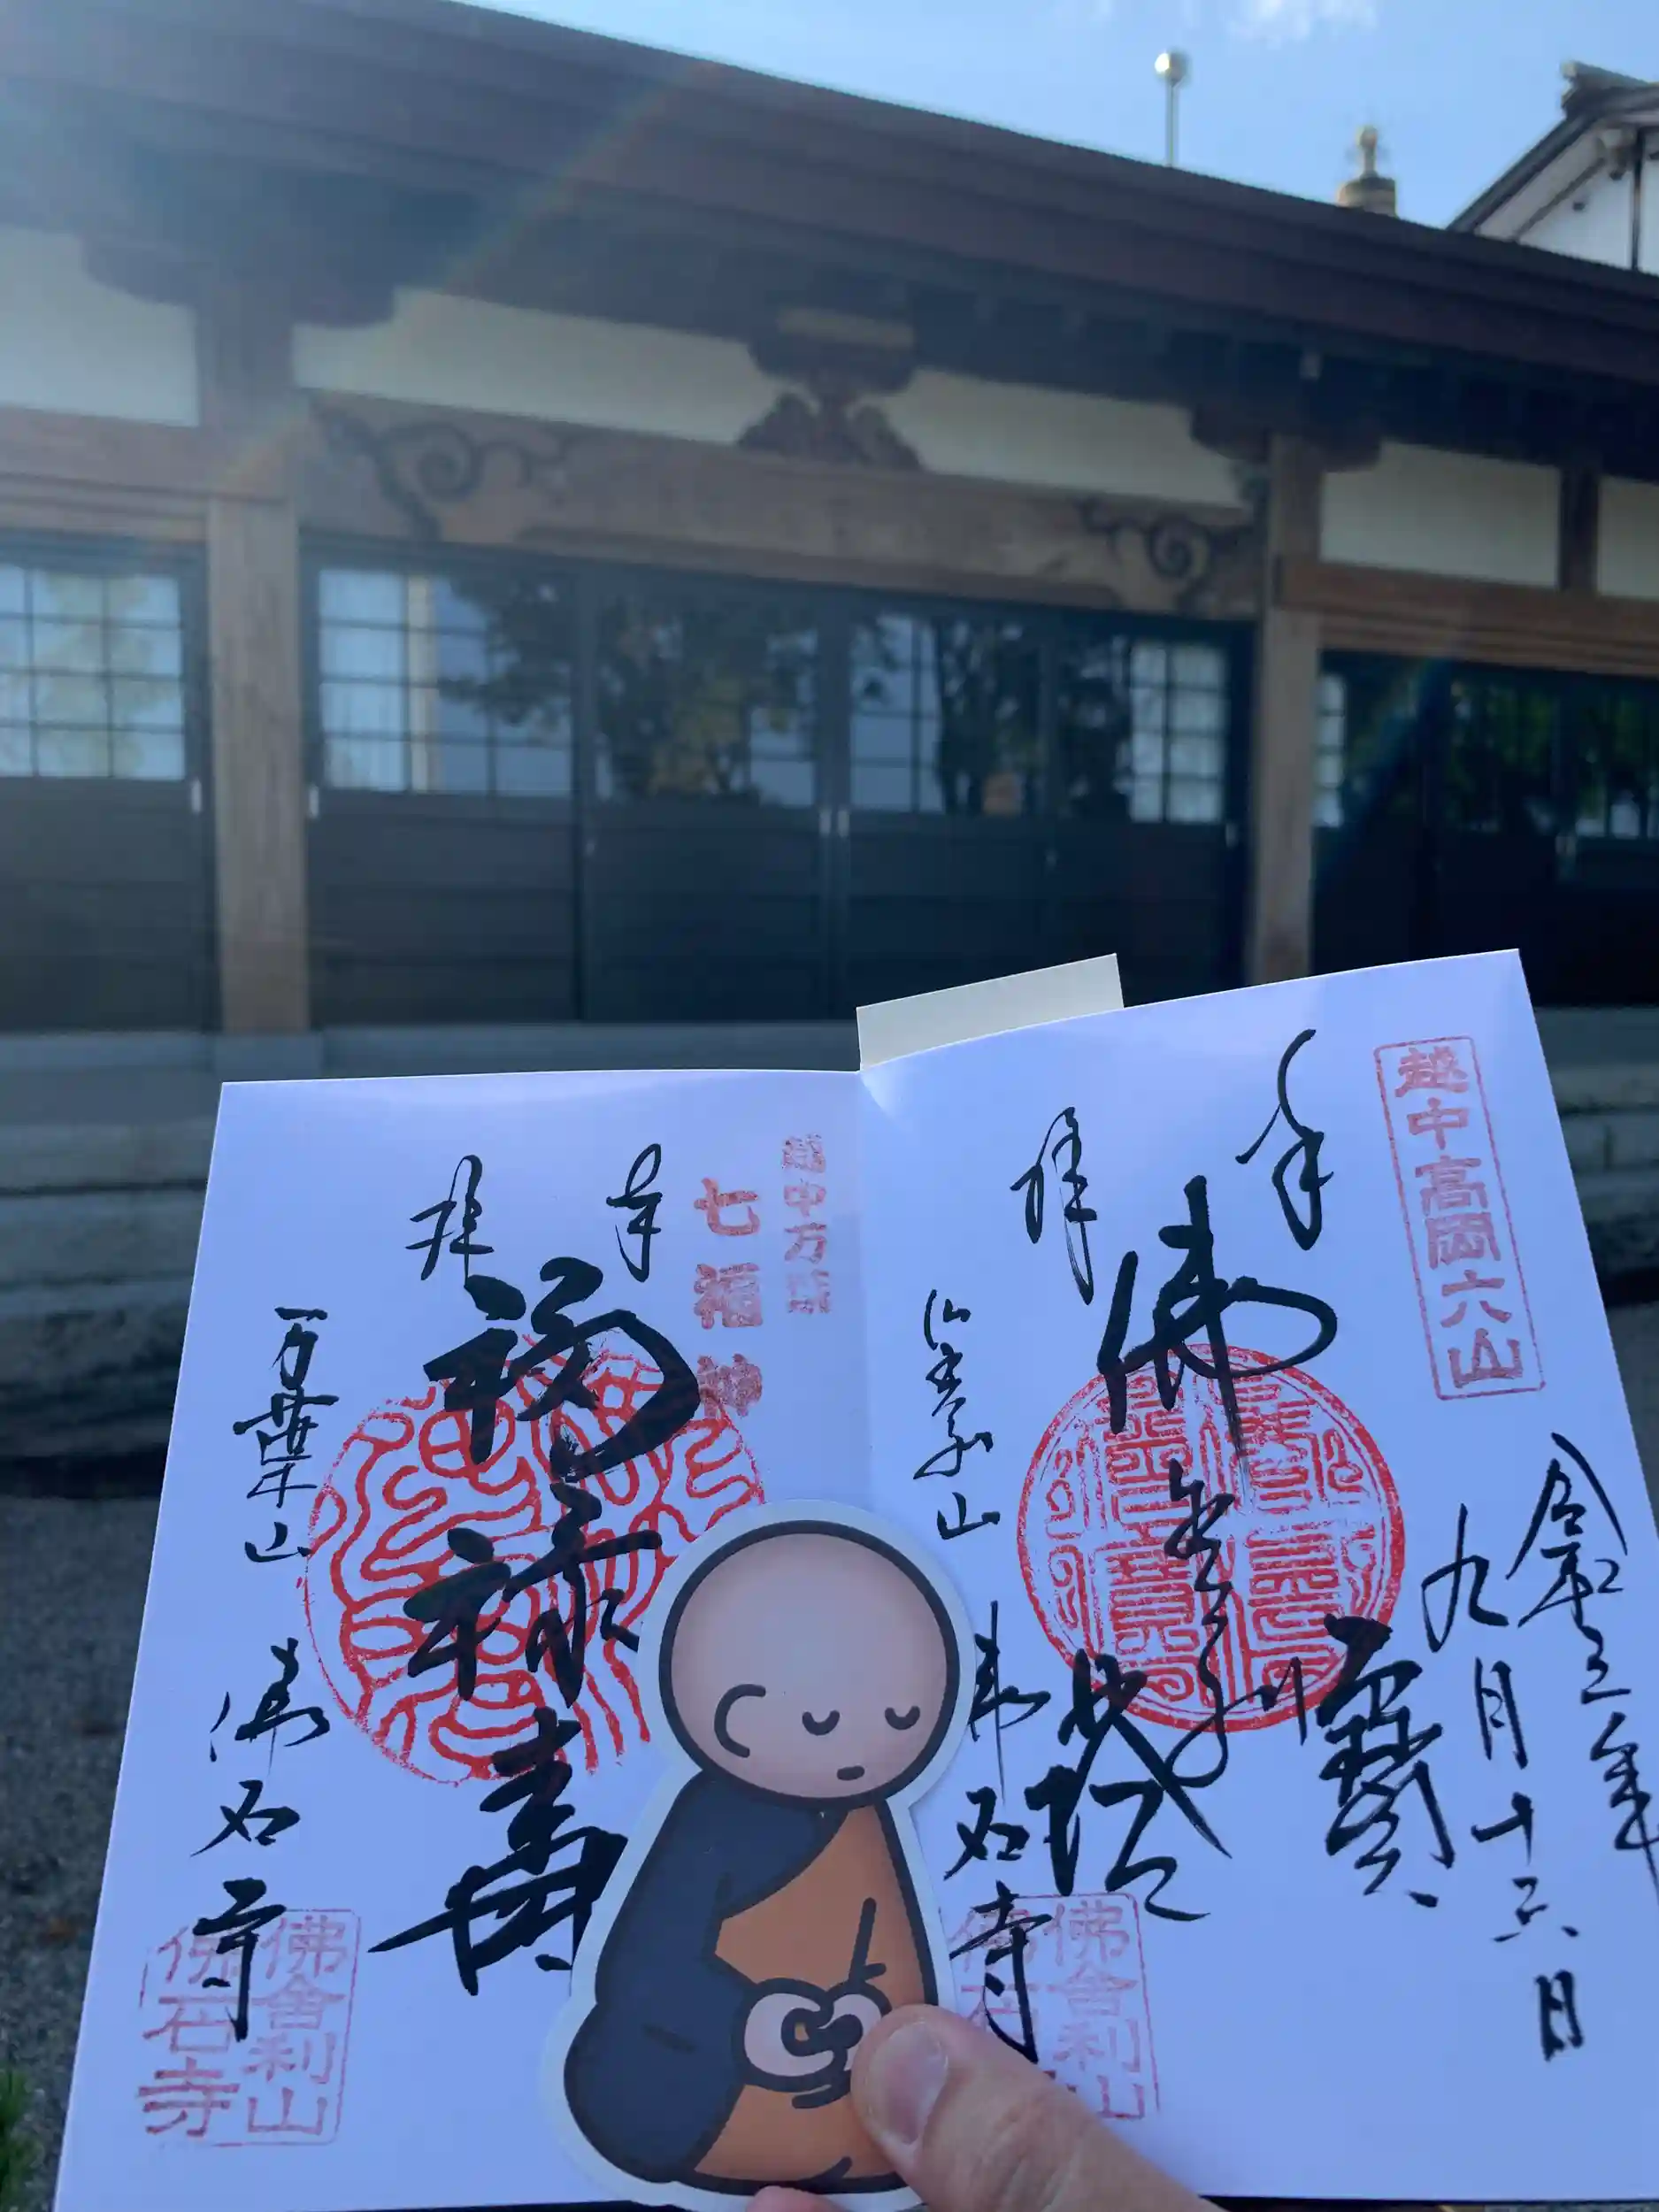 越中高岡六山
令和三年
九月十六日
奉
拝
佛舎利
寳塔
佛石寺
佛舎利山
佛石寺
越中万葉
七福神
奉
拝
福禄寿
万葉山
佛石寺
佛舎利山
佛石寺